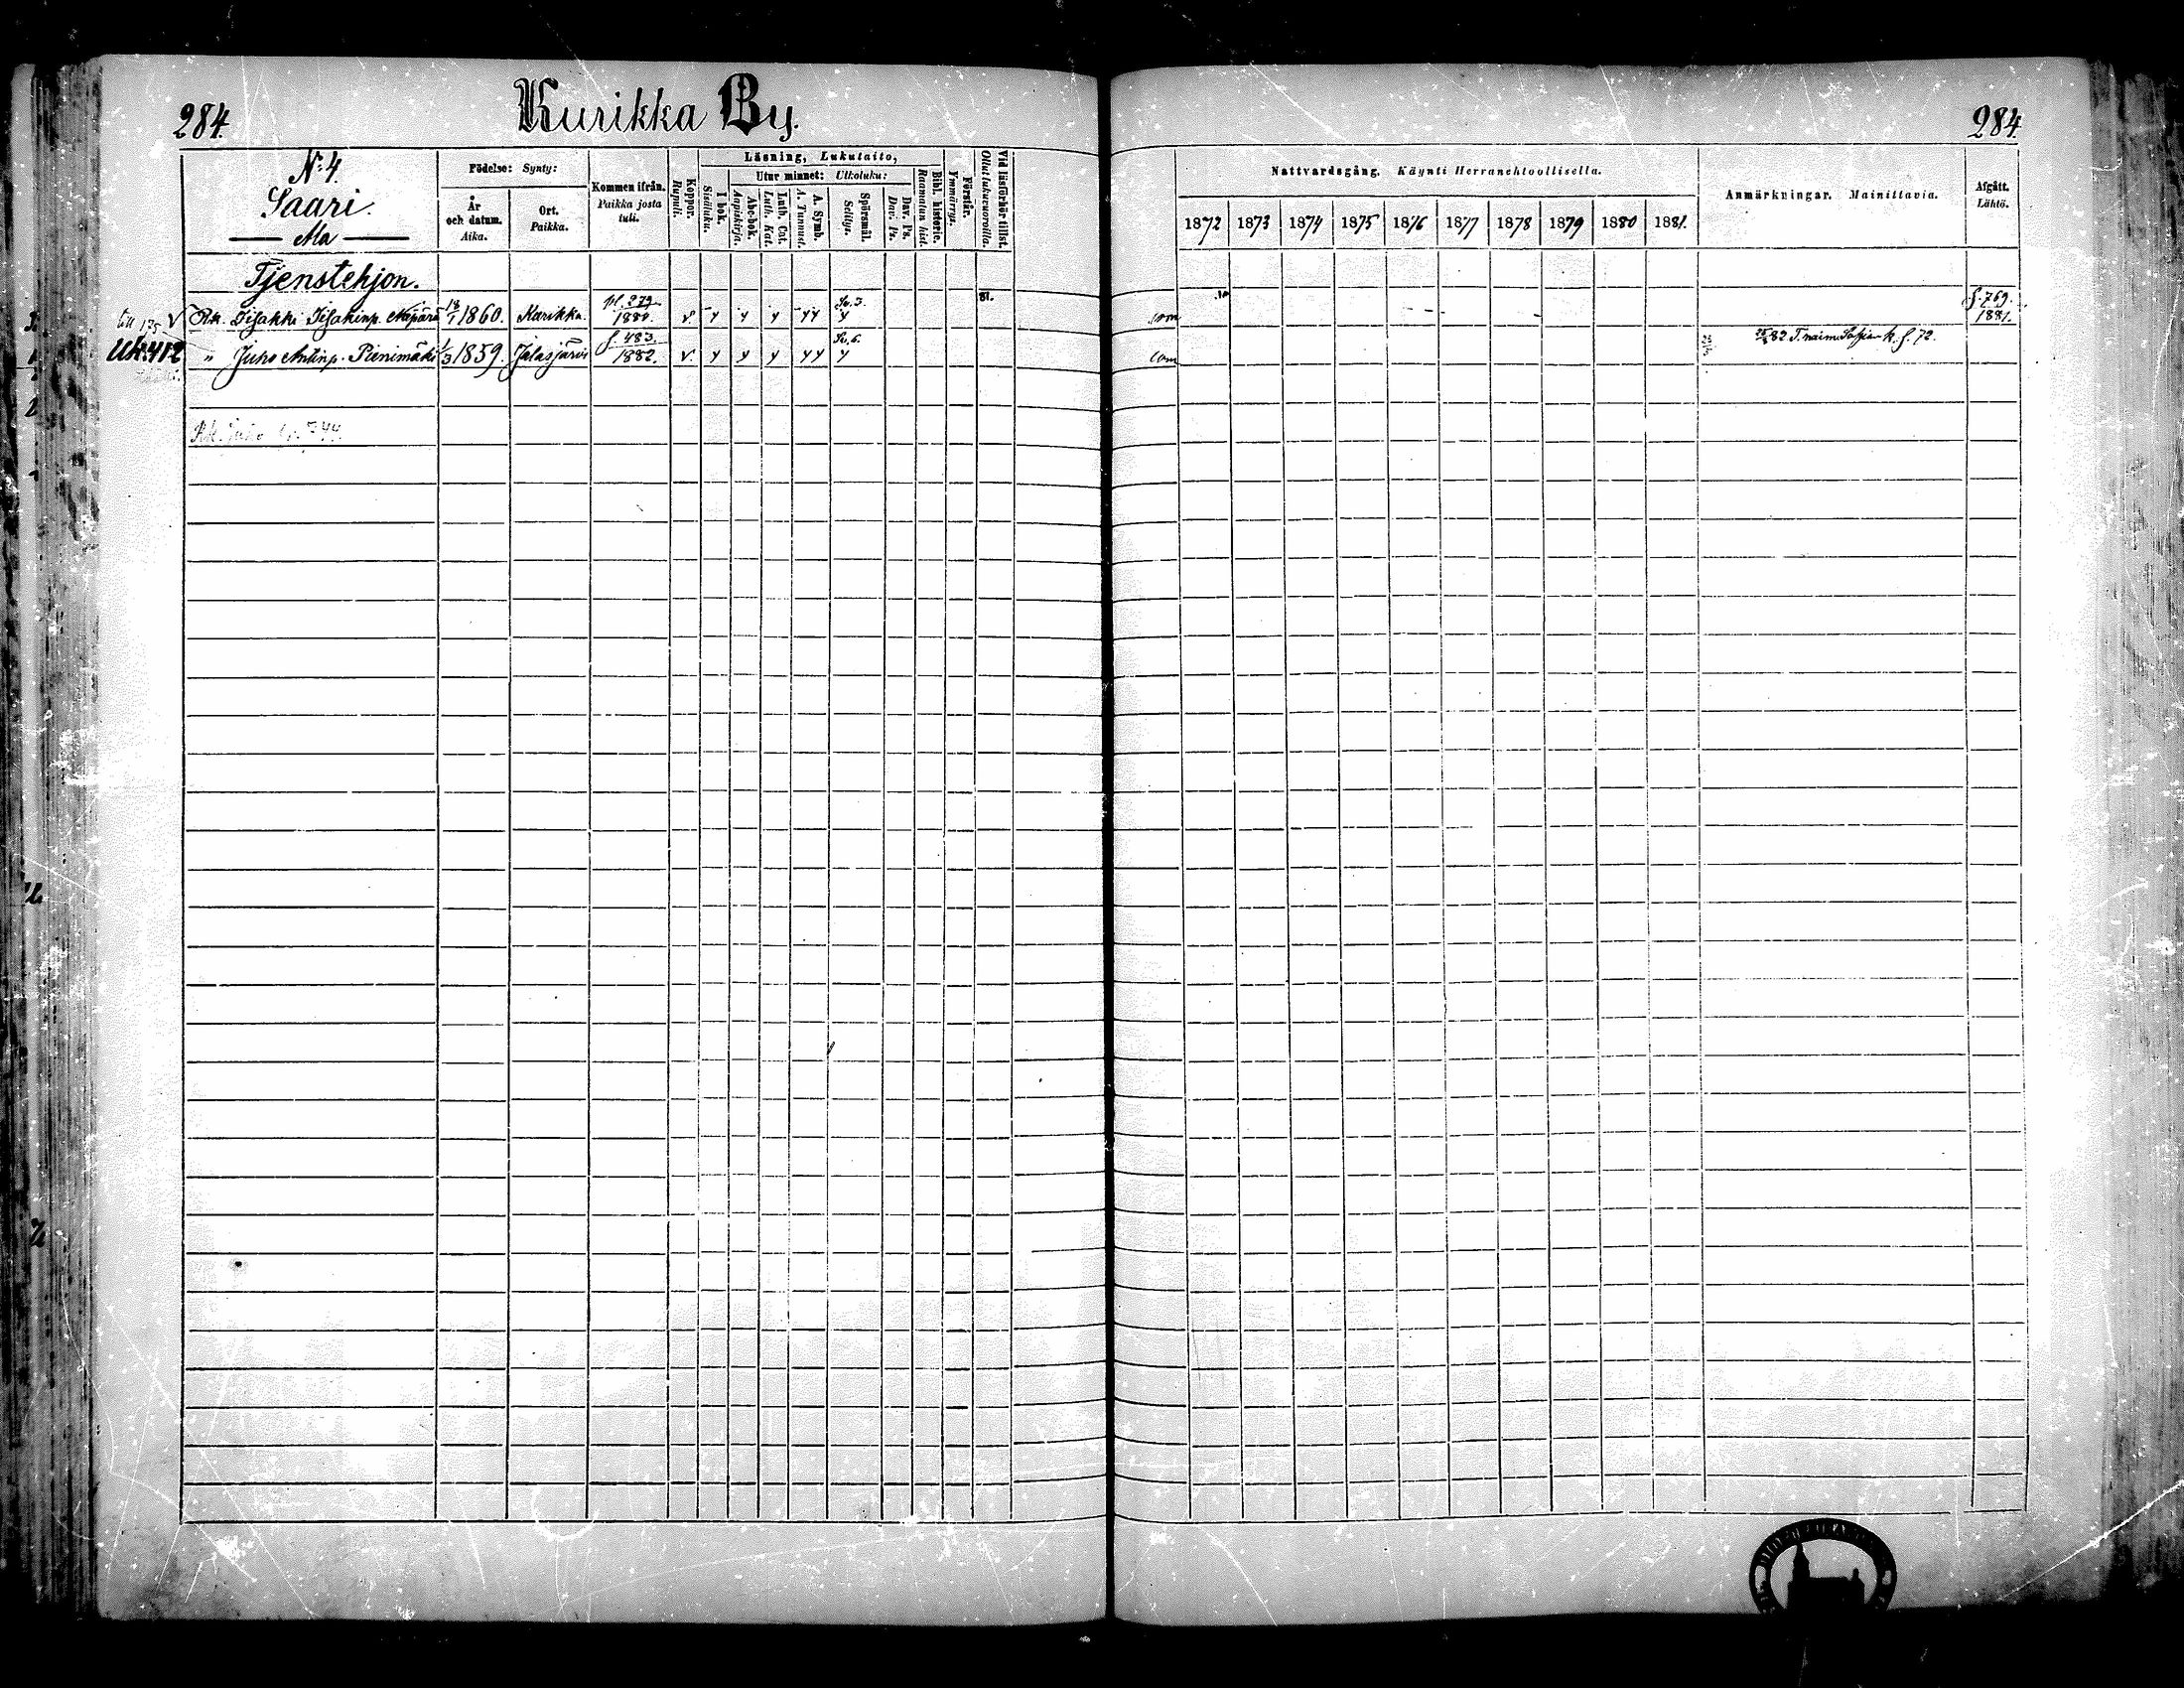 284.
Kurikka By.
284.
No 4.
Saari.
Ala
Födelse: Synty:
År och datum. Aika.
Ort. Paikka.
Kommen ifrån. Paikka josta tuli.
Koppor. Rupuli.
Läsning, Lukutaito,
I bok. Sisäluku.
Utur minnet: Ulkoluku:
Abc-bok. Aapiskirja.
Luth. Cat. Luth. Kat.
A. Symb. A. Tunnust.
Spörsmål. Selitys.
Dav. Ps. Dav. Ps.
Bibl. historie. Raamatun hist.
Förstår. Ymmärrys.
Vid läsförhör tillst. Ollut lukuvuoroilla.
Nattvardsgång. Käynti Herranehtoollisella.
1872 1873 1874 1875 1876 1877 1878 1879 1880 1881.
Anmärkningar. Mainittavia.
Afgått. Lähtö.
Tjenstehjon.
till 175 V Rk. Iisakki Iisakinp. 18/1 1860. Kurikka. pl. 279. 1880. v. y y y yy Sv. 3. y 81. f. 769. 1881.
Uk. 412 " Juho Antinp. Pienimäki 1/3 1859. Jalasjärvi f. 483. 1882. v. y y y yy Sv. 6. y com 82. T. naim. k. f. 72.
Rk. Juho